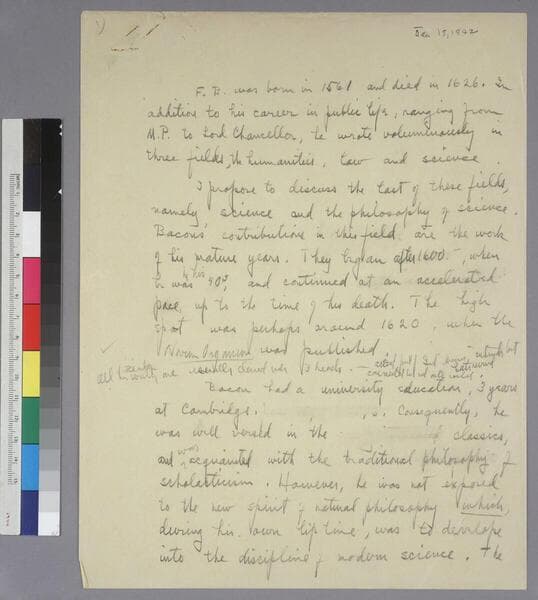 Dec 15, 1942
F. B. was born in 1561 and died in 1626. In
addition to his career in public life, ranging from
M.P. to Lord Chancellor, he wrote voluminously in
three fields, the humanities, law and science.
I propose to discuss the last of these fields,
namely science and the philosophy of science.
Bacon's contributions in this field are the work
of his mature years. They began after 1600, when
he was in his 40s, and continued at an accelerated
pace up to the time of his death. The high
spot was perhaps around 1620, when the
✓ Novum Organum was published
all his works are usually
Bacon had a university education, 3 years
at Cambridge. Consequently, he
was well versed in the classics,
and was acquainted with the traditional philosophy of
scholasticism. However, he was not exposed
to the new spirit of natural philosophy which,
during his own life time, was to develope
into the discipline of modern science. The